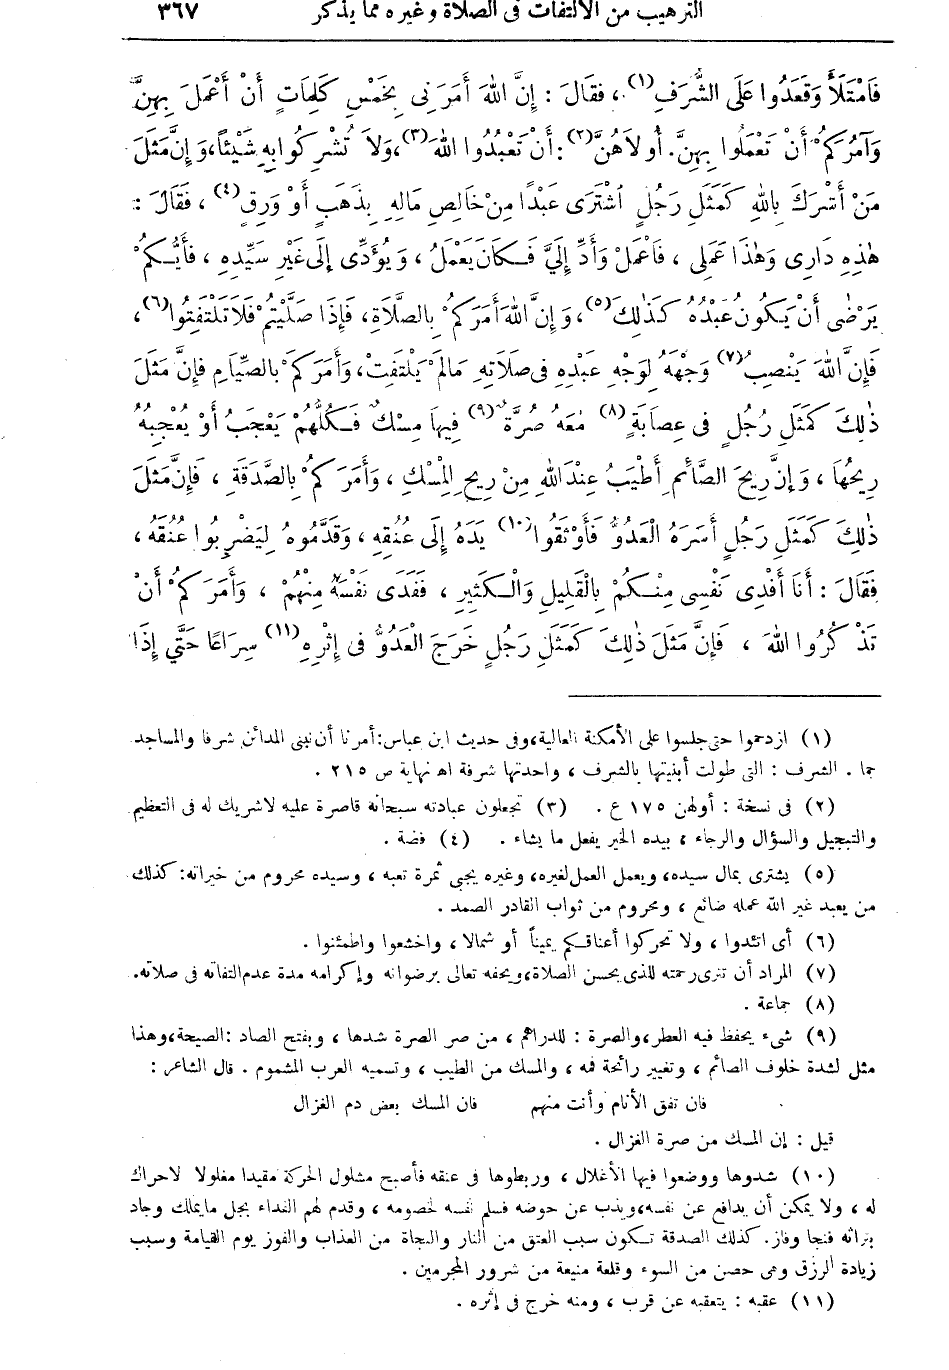 الترهيب من الالتفات فى الصلاة وغيره مما يذكر ٣٦٧
فَامْتَلَأَ وَقَعَدُوا عَلَى الشُّرَفِ(١)، فَقَالَ : إِنَّ اللهَ أَمَرَنِى بِخَمْسِ كَلِمَاتٍ أَنْ أَعْمَلَ بِهِنَّ
وَآمُرُكُمْ أَنْ تَعْمَلُوا بِهِنَّ. أُولَاهُنَّ(٢) : أَنْ تَعْبُدُوا اللهَ(٣)، وَلَا تُشْرِكُوا بِهِ شَيْئًا، وَإِنَّ مَثَلَ
مَنْ أَشْرَكَ بِاللهِ كَمَثَلِ رَجُلٍ اشْتَرَى عَبْدًا مِنْ خَالِصِ مَالِهِ بِذَهَبٍ أَوْ وَرِقٍ(٤) ، فَقَالَ :
هٰذِهِ دَارِى وَهٰذَا عَمَلِى ، فَاعْمَلْ وَأَدِّ إِلَيَّ فَكَانَ يَعْمَلُ ، وَيُؤَدِّى إِلَى غَيْرِ سَيِّدِهِ ، فَأَيُّكُمْ
يَرْضَى أَنْ يَكُونَ عَبْدُهُ كَذٰلِكَ(٥)، وَإِنَّ اللهَ أَمَرَكُمْ بِالصَّلَاةِ، فَإِذَا صَلَّيْتُمْ فَلَا تَلْتَفِتُوا(٦)،
فَإِنَّ اللهَ يَنْصِبُ(٧) وَجْهَهُ لِوَجْهِ عَبْدِهِ فِى صَلَاتِهِ مَالَمْ يَلْتَفِتْ، وَأَمَرَكُمْ بِالصِّيَامِ فَإِنَّ مَثَلَ
ذٰلِكَ كَمَثَلِ رَجُلٍ فِى عِصَابَةٍ(٨) مَعَهُ صُرَّةٌ(٩) فِيهَا مِسْكٌ فَكُلُّهُمْ يَعْجَبُ أَوْ يُعْجِبُهُ
رِيحُهَا ، وَإِنَّ رِيحَ الصَّائِمِ أَطْيَبُ عِنْدَ اللهِ مِنْ رِيحِ الْمِسْكِ ، وَأَمَرَكُمْ بِالصَّدَقَةِ ، فَإِنَّ مَثَلَ
ذٰلِكَ كَمَثَلِ رَجُلٍ أَسَرَهُ الْعَدُوُّ فَأَوْثَقُوا(١٠) يَدَهُ إِلَى عُنُقِهِ ، وَقَدَّمُوهُ لِيَضْرِبُوا عُنُقَهُ ،
فَقَالَ : أَنَا أَفْدِى نَفْسِى مِنْكُمْ بِالْقَلِيلِ وَالْكَثِيرِ ، فَفَدَى نَفْسَهُ مِنْهُمْ ، وَأَمَرَكُمْ أَنْ
تَذْكُرُوا اللهَ ، فَإِنَّ مَثَلَ ذٰلِكَ كَمَثَلِ رَجُلٍ خَرَجَ الْعَدُوُّ فِى إِثْرِهِ(١١) سِرَاعًا حَتَّى إِذَا
(١) ازدحموا حتى جلسوا على الأمكنة العالية، وفى حديث ابن عباس: أمرنا أن نبنى المدائن شرفا والمساجد
جما . الشرف : التى طولت أبنيتها بالشرف ، واحدتها شرفة اه نهاية ص ٢١٥ .
(٢) فى نسخة : أولهن ١٧٥ ع . (٣) تجعلون عبادته سبحانه قاصرة عليه لاشريك له فى التعظيم
والتبجيل والسؤال والرجاء ، بيده الخير يفعل ما يشاء . (٤) فضة .
(٥) يشترى بمال سيده، ويعمل العمل لغيره، وغيره يجنى ثمرة تعبه ، وسيده محروم من خيراته: كذلك
من يعبد غير الله عمله ضائع ، ومحروم من ثواب القادر الصمد .
(٦) أى اتئدوا ، ولا تحركوا أعناقكم يميناً أو شمالا ، واخشعوا واطمئنوا .
(٧) المراد أن تترى رحمته للذى يحسن الصلاة، ويحفه تعالى برضوانه وإكرامه مدة عدم التفاته فى صلاته.
(٨) جماعة .
(٩) شىء يحفظ فيه العطر، والصرة : للدراهم ، من صر الصرة شدها ، وبفتح الصاد : الصيحة، وهذا
مثل لشدة خلوف الصائم ، وتغيير رائحة فمه ، والمسك من الطيب ، وتسميه العرب المشموم . قال الشاعر :
فان تفق الأنام وأنت منهم فان المسك بعض دم الغزال
قيل : إن المسك من صرة الغزال .
(١٠) شدوها ووضعوا فيها الأغلال ، وربطوها فى عنقه فأصبح مشلول الحركة مقيدا مغلولا لاحراك
له ، ولا يمكن أن يدافع عن نفسه، ويذب عن حوضه فسلم نفسه لخصومه ، وقدم لهم الفداء بجل مايملك وجاد
بتراثه فنجا وفاز. كذلك الصدقة تكون سبب العتق من النار والنجاة من العذاب والفوز يوم القيامة وسبب
زيادة الرزق وهى حصن من السوء وقلعة منيعة من شرور المجرمين .
(١١) عقبه : يتعقبه عن قرب ، ومنه خرج فى إثره .